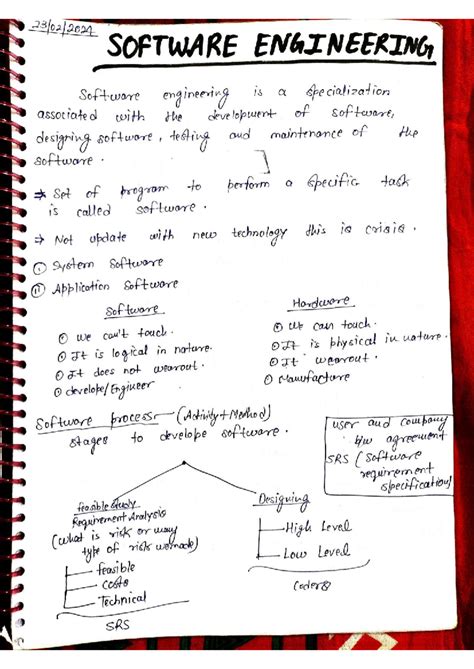 23/02/2024
SOFTWARE ENGINEERING
Software engineering is a specialization
associated with the development of software,
designing software, testing and maintenance of the
software.
⇒ Set of program to perform a specific task
is called software.
⇒ Not update with new technology this is crisis.
(i) System Software
(ii) Application Software
Software
① We can't touch.
① It is logical in nature.
① It does not wearout.
① develope/Engineer
Hardware
① We can touch.
① It is physical in nature.
① It wearout.
① Manufacture
Software process - (Activity + Method)
stages to develope software.
user and company
b/w agreement
SRS (Software
requirement
specification)
feasible study
Requirement Analysis
(What is risk or way
type of risk
feasible
Costs
Technical
SRS
Designing
High Level
Low Level
Coders